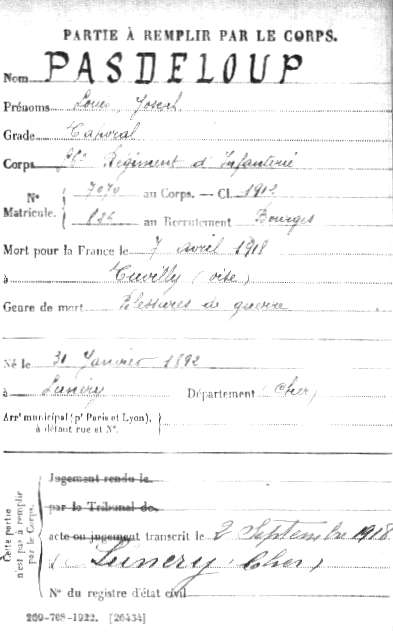 PARTIE À REMPLIR PAR LE CORPS.
Nom PASDELOUP
Prénoms Louis, Joseph
Grade Caporal
Corps Régiment d'Infanterie
N° Matricule. { 7070 au Corps. — Cl. 1912
826 au Recrutement Bourges
Mort pour la France le 7 avril 1918
à Cuvilly (oise)
Genre de mort Blessures de guerre
Né le 31 Janvier 1892
à Lunery Département (Cher)
Arr¹ municipal (p¹ Paris et Lyon),
à défaut rue et N°.
Cette partie n'est pas à remplir par le Corps.
Jugement rendu le
par le Tribunal de
acte ou jugement transcrit le 2 Septembre 1918
à Lunery (Cher)
N° du registre d'état civil
200-708-1922. [26434]